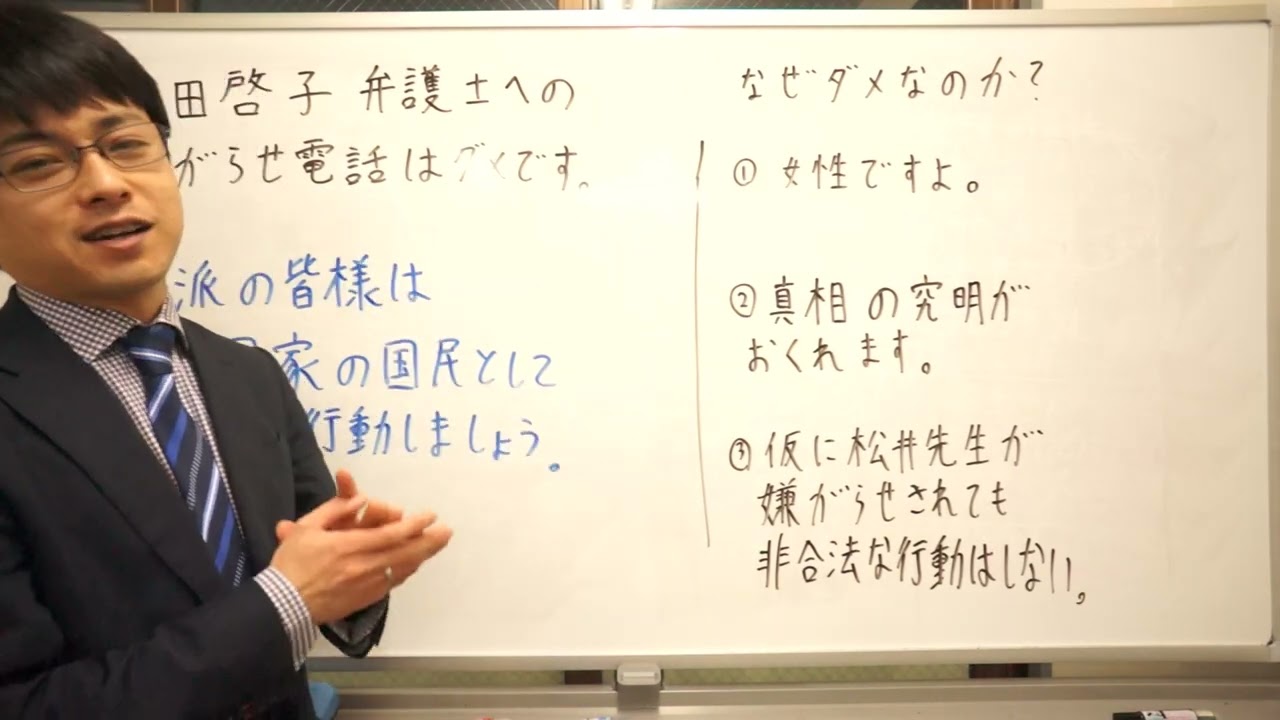 田啓子 弁護士への
がらせ電話はダメです。
派の皆様は
家の国民として
行動しましょう。
なぜダメなのか?
① 女性ですよ。
② 真相の究明が
おくれます。
③ 仮に松井先生が
嫌がらせされても
非合法な行動はしない。